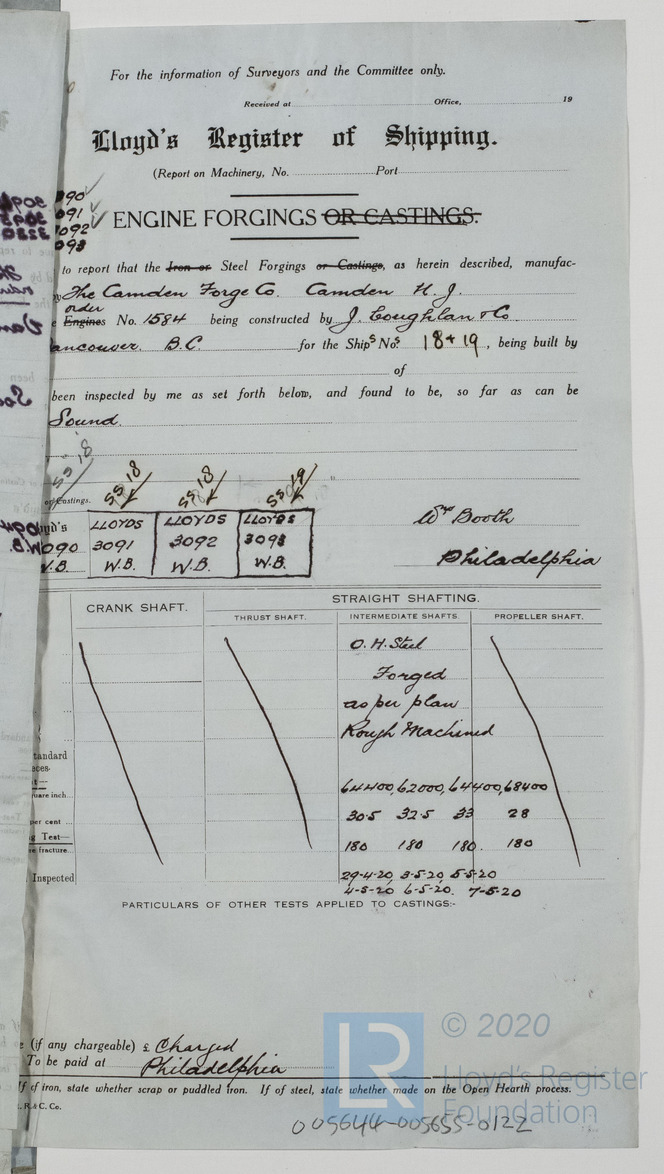 For the information of Surveyors and the Committee only.
Received at Office, 19
Lloyd's Register of Shipping.
(Report on Machinery, No. Port
090
091
092
093
ENGINE FORGINGS OR CASTINGS.
to report that the Iron or Steel Forgings or Castings, as herein described, manufac-
The Camden Forge Co. Camden N. J.
order
Engines No. 1584 being constructed by J. Coughlan & Co
ancouver. B.C. for the Ships Nos 18 + 19, being built by
of
been inspected by me as set forth below, and found to be, so far as can be
Sound.
SS 18 SS 18 SS 18 SS 19
or Castings.
yd's LLOYDS LLOYDS LLOYDS
090 3091 3092 3093
W.B. W.B. W.B. W.B.
Wm Booth
Philadelphia
CRANK SHAFT. STRAIGHT SHAFTING.
THRUST SHAFT. INTERMEDIATE SHAFTS. PROPELLER SHAFT.
O. H. Steel
Forged
as per plan
Rough Machined
tandard
eces.
t—
uare inch 64400, 62000, 64400, 68400
per cent 30.5 32.5 33 28
g Test—
re fracture. 180 180 180. 180
Inspected 29-4-20, 3-5-20, 5-5-20
4-5-20 6-5-20. 7-5-20
PARTICULARS OF OTHER TESTS APPLIED TO CASTINGS:-
e (if any chargeable) £ Charged
To be paid at Philadelphia
If of iron, state whether scrap or puddled iron. If of steel, state whether made on the Open Hearth process.
R. & C. Co.
LR © 2020
Lloyd's Register
Foundation
005644-005655-0122